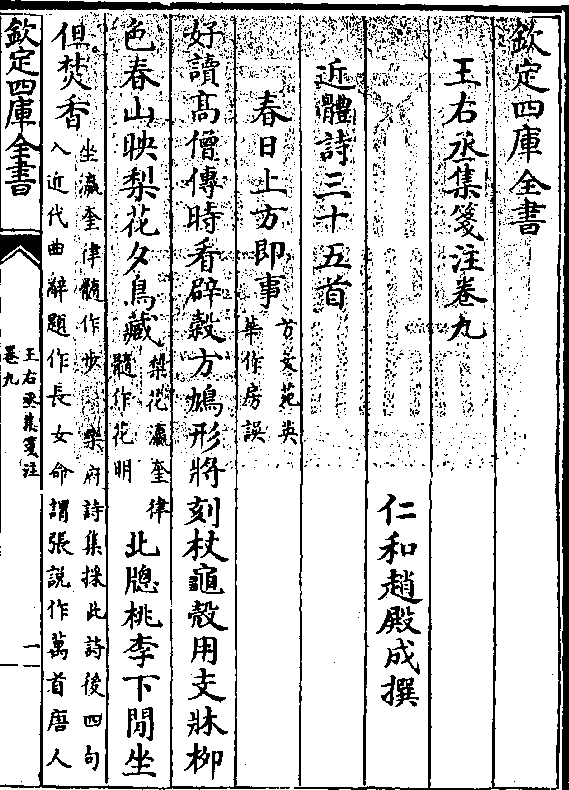 欽定四庫全書
王右丞集箋注卷九
仁和趙殿成撰
近體詩三十五首
春日上方即事
方文苑英
華作房誤
好讀髙僧傳時看辟榖方鳩形將刻杖龜殻用支牀栁
色春山映梨花夕鳥藏
梨花瀛奎律
髓作花明
北牕桃李下閒坐
但焚香
坐瀛奎律髓作步 樂府詩集採此詩後四句
入近代曲辭題作長女命謂張說作萬首唐人
欽定四庫全書
王右丞集箋注
卷九
一